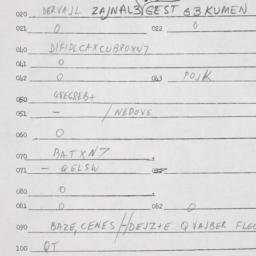 020 DERVAJL ZAJNAL3 GEST 63 KUMEN
021 0 022 0
040 DIFIDLCAXCUBROXN7
041 0
042 0 043 POJK
050 GVEGREB+
051 - / NEDOVE
060 0
070 BATXN7
071 - QELSW
080 0
081 0 082 0
090 BAZE, CENES /-/ DEJZ+E QVAJBER FLEC
100 QT